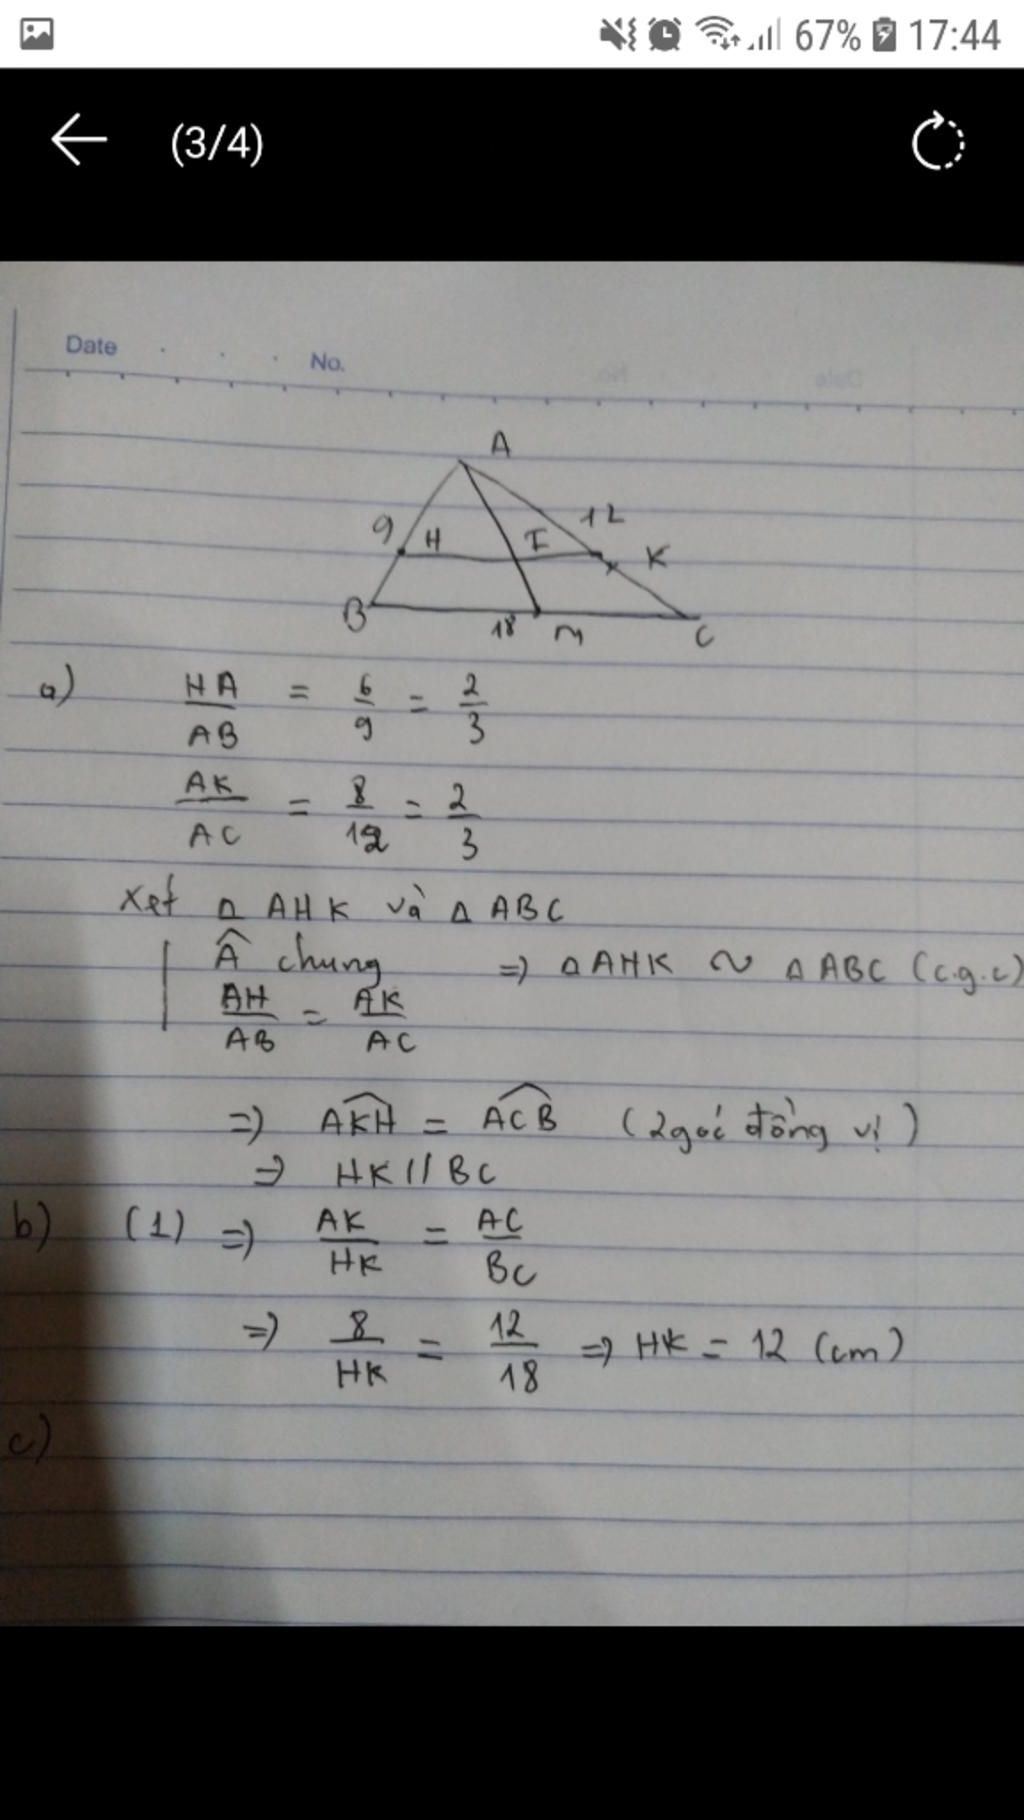 67% 17:44
(3/4)
Date No.
A
9 H I 12 K
B 18 M C
a) HA/AB = 6/9 = 2/3
AK/AC = 8/12 = 2/3
Xét Δ AHK và Δ ABC
Â chung => Δ AHK ~ Δ ABC (c.g.c)
AH/AB = AK/AC
=> AKH = ACB (2 góc đồng vị)
=> HK // BC
b) (1) => AK/HK = AC/BC
=> 8/HK = 12/18 => HK = 12 (cm)
c)